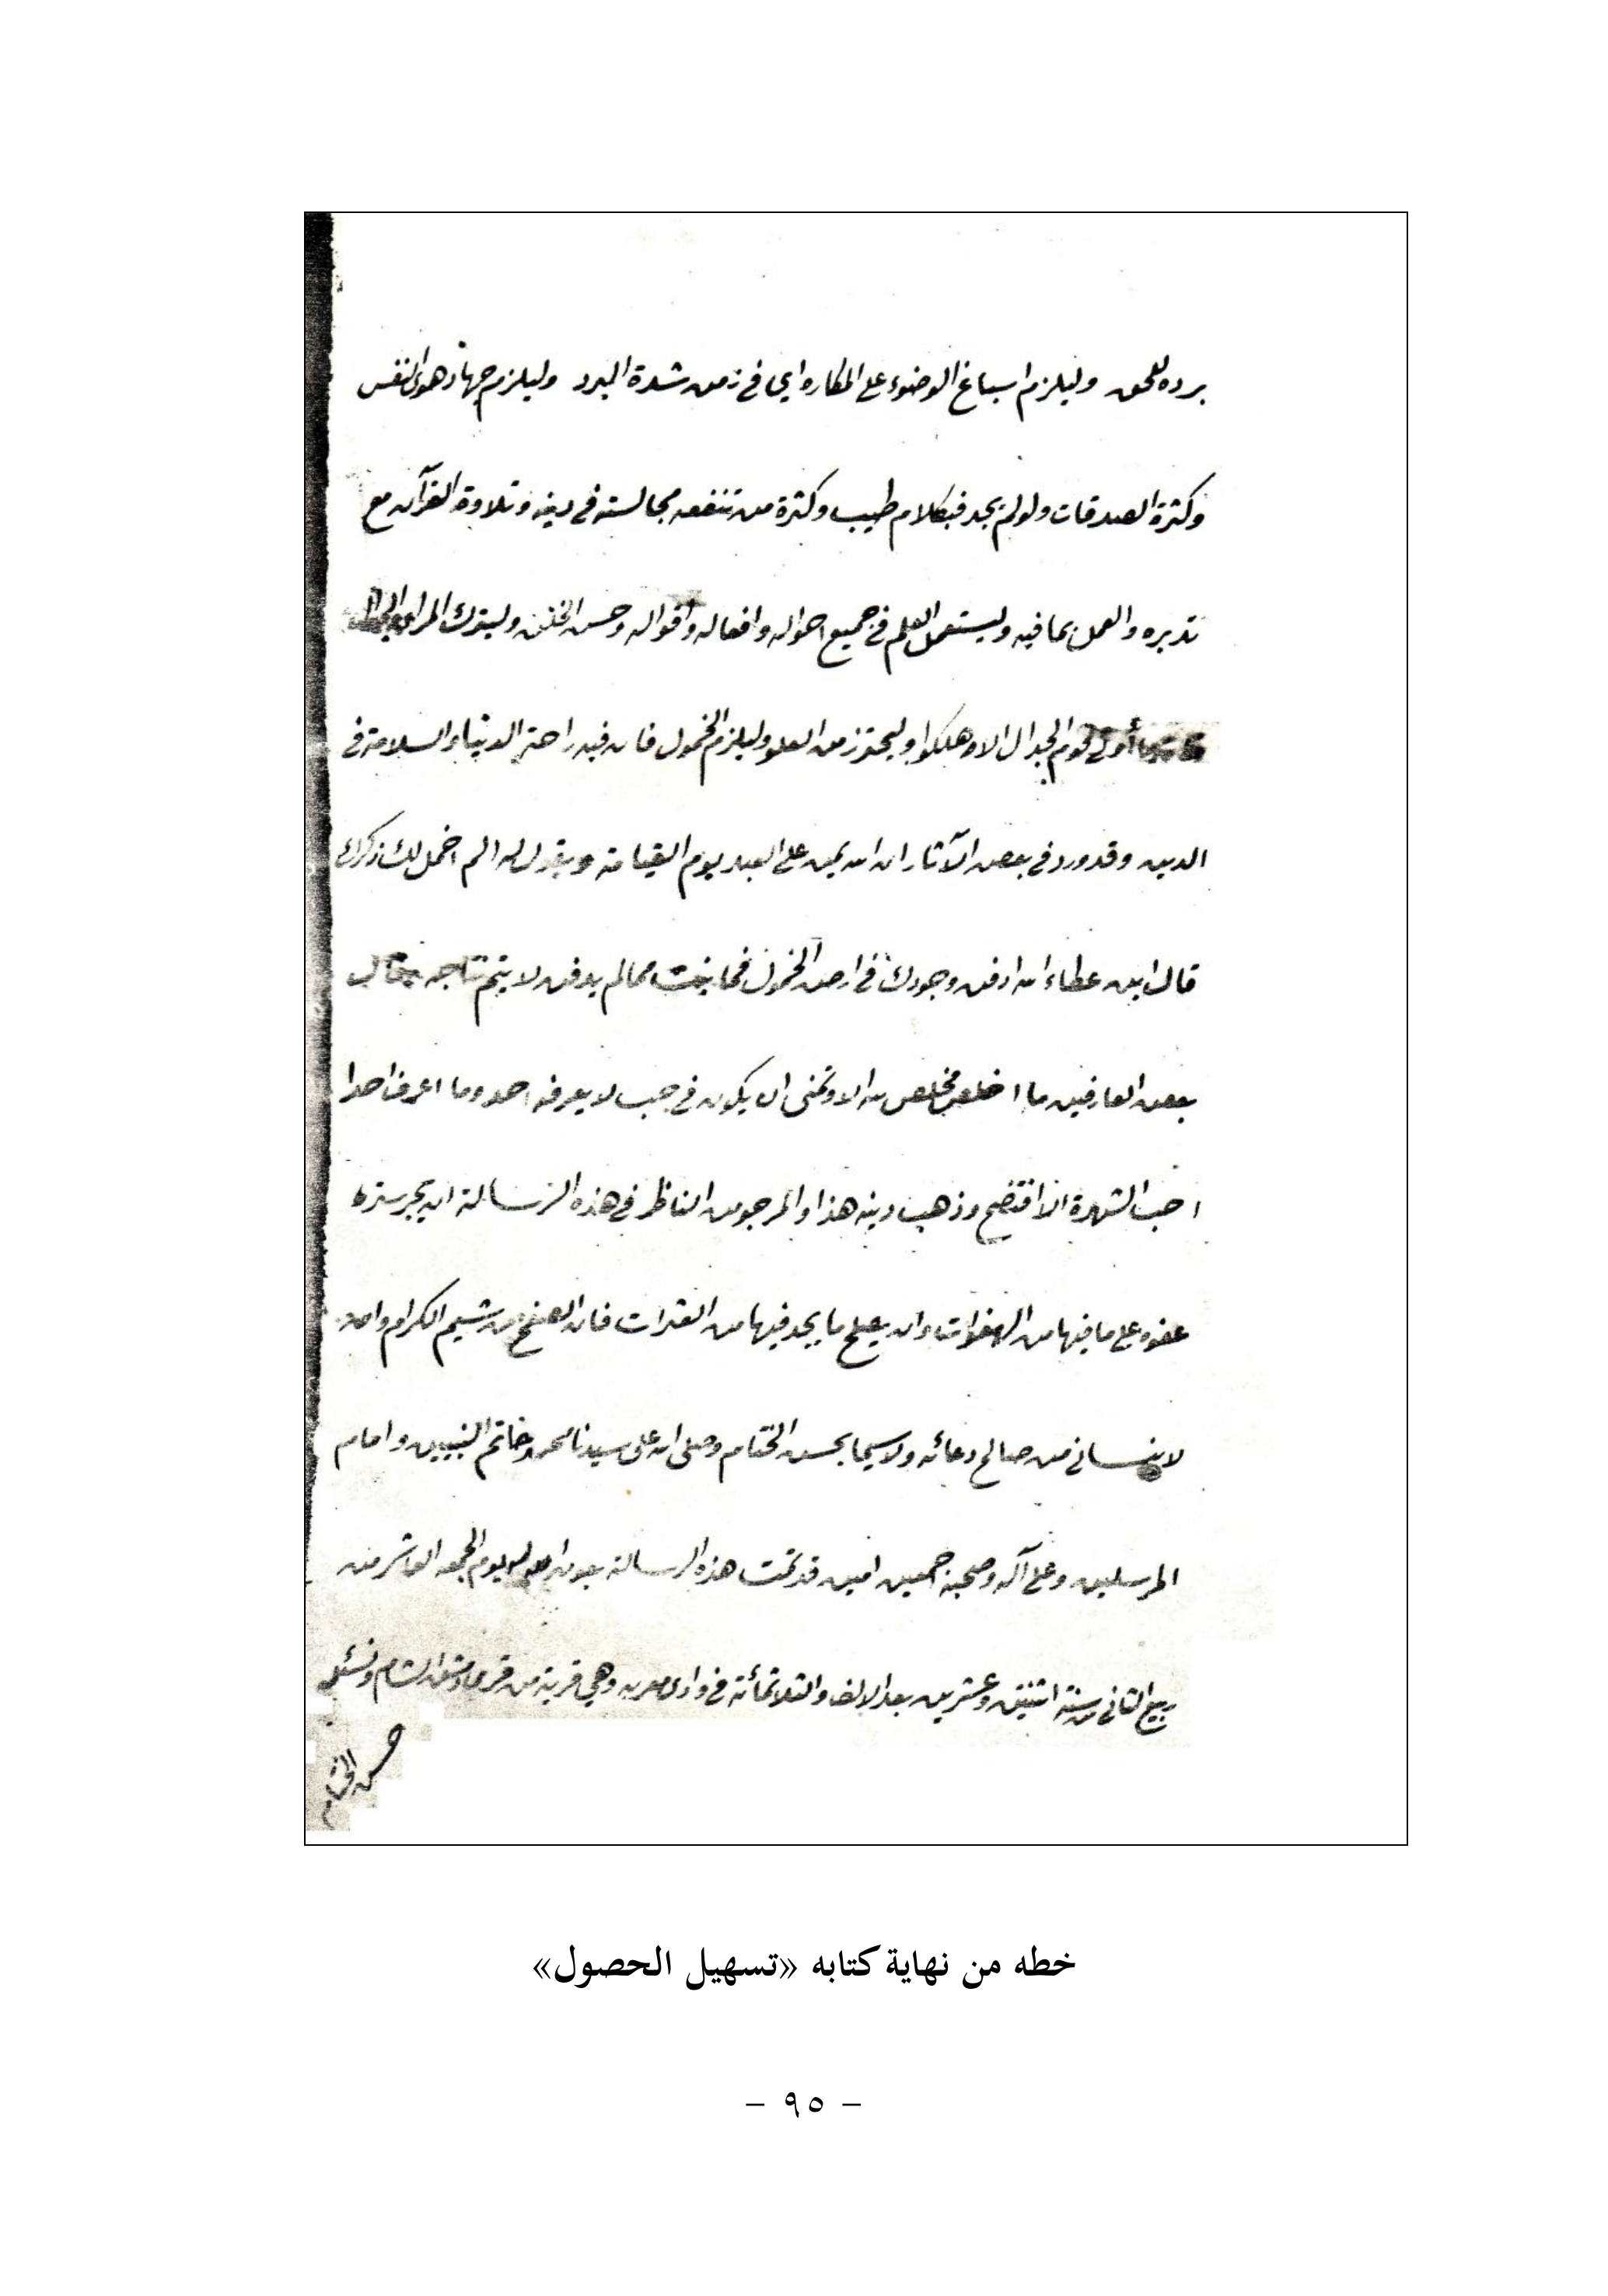 برده للحق وليلزم اسباغ الوضوء على المكاره اي في زمن شدة البرد وليلزم جهاد هوى النفس
وكثرة الصدقات ولو لم يجد فبكلام طيب وكثرة من تنفعه مجالسته في دينه وتلاوة القرآن مع
تدبره والعمل بما فيه وليستعمل العلم في جميع احواله وافعاله واقواله وحسن الخلق وليترك المراء
أوتي قوم الجدال الا وهلكوا وليحترز من العلو وليلزم الخمول فان فيه راحة الدنيا والسلامة في
الدين وقد ورد في بعض الآثار ان الله يمن على العبد يوم القيامة ويقول له الم اخمل لك ذكرك
قال ابن عطاء الله ادفن وجودك في ارض الخمول فما نبت مما لم يدفن لا يتم نتاجه
بعض العارفين ما اخلص مخلص لله الا وتمنى ان يكون في جب لا يعرفه احد وما اعرف احدا
احب الشهرة الا افتضح وذهب دينه هذا والمرجو من الناظر في هذه الرسالة ان يجر ستر
عفوه على ما فيها من الهفوات وان يصلح ما يجد فيها من العثرات فان الصفح من شيم الكرام وان
لا ينساني من صالح دعائه ولا سيما بحسن الختام وصلى الله على سيدنا محمد خاتم النبيين وامام
المرسلين وعلى آله وصحبه اجمعين امين قد تمت هذه الرسالة بعون يوم الجمعه العاشر من
ربيع الثاني من سنة اثنين وعشرين بعد الالف والثلاثمائة في وادي وهي قرية من قرى دمشق الشام ونسئله
حسن الختام
خطه من نهاية كتابه «تسهيل الحصول»
– ٩٥ –